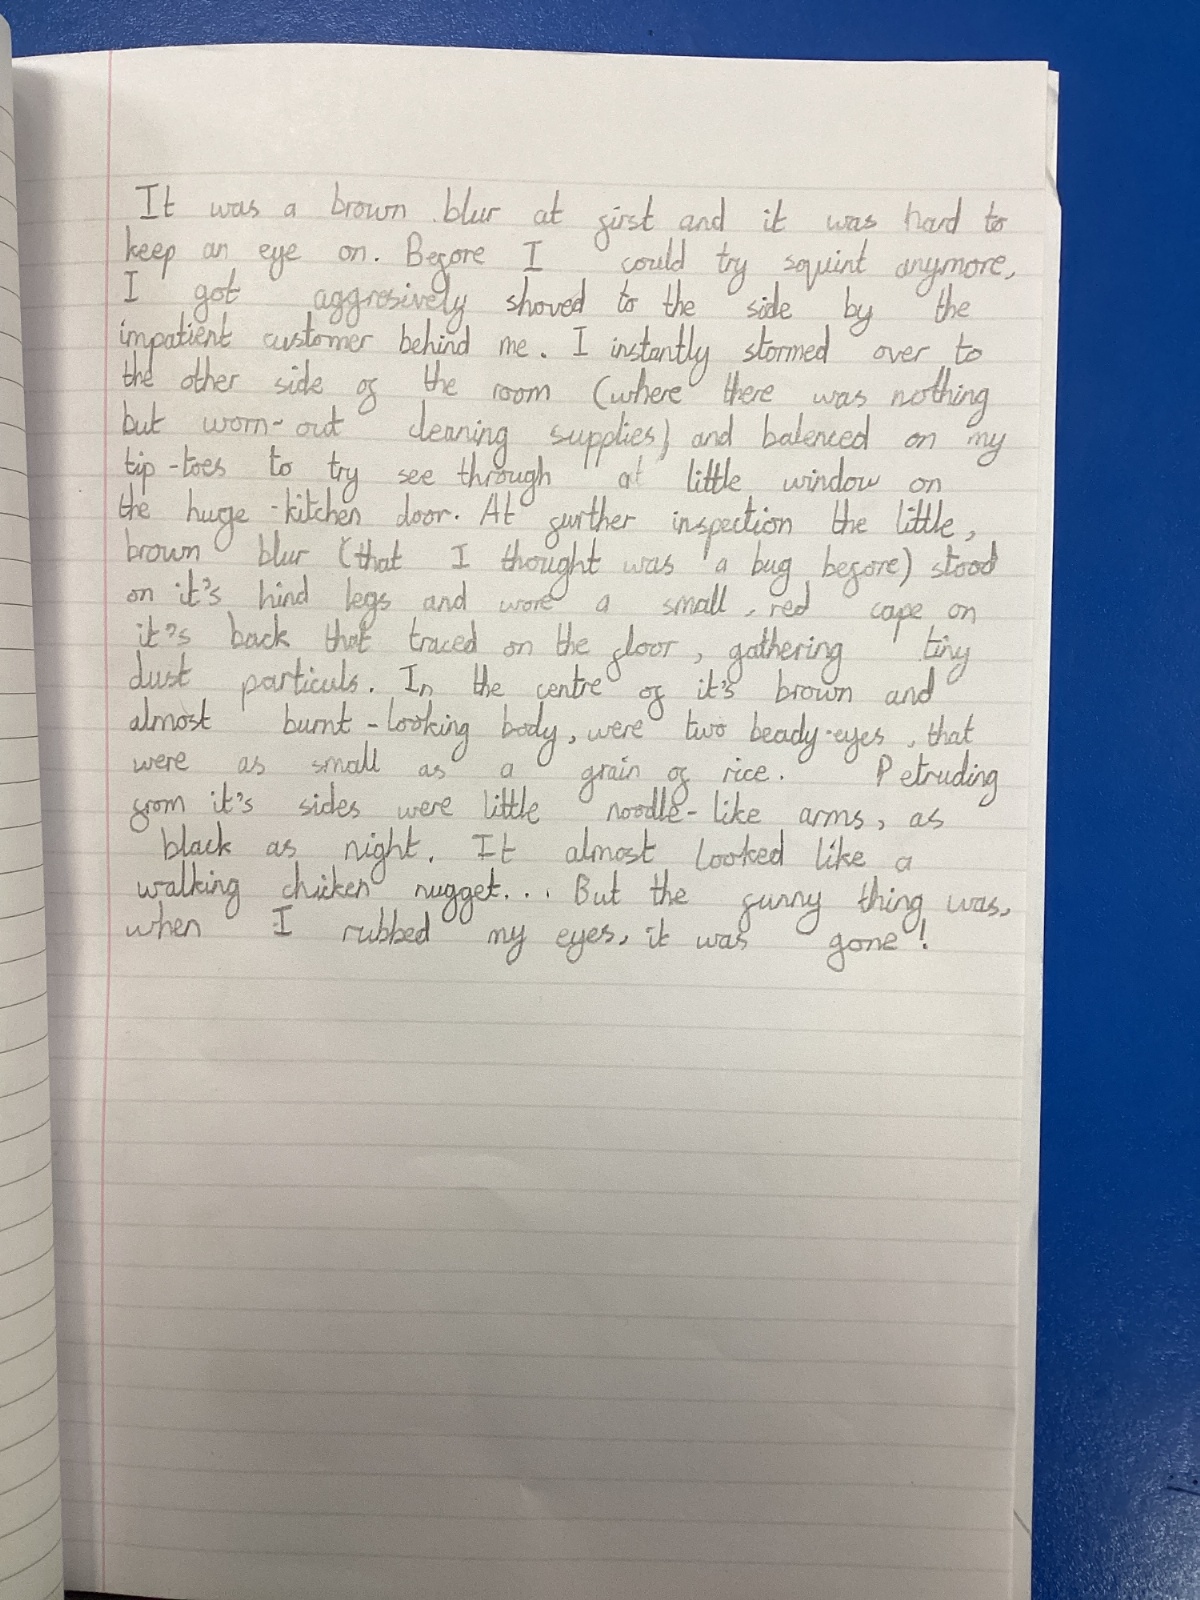 It was a brown blur at first and it was hard to
keep an eye on. Before I could try squint anymore,
I got aggresively shoved to the side by the
impatient customer behind me. I instantly stormed over to
the other side of the room (where there was nothing
but worn-out cleaning supplies) and balenced on my
tip-toes to try see through at little window on
the huge-kitchen door. At further inspection the little,
brown blur (that I thought was a bug before) stood
on it's hind legs and wore a small, red cape on
it's back that traced on the floor, gathering tiny
dust particuls. In the centre of it's brown and
almost burnt-looking body, were two beady-eyes, that
were as small as a grain of rice. Petruding
from it's sides were little noodle-like arms, as
black as night. It almost looked like a
walking chicken nugget... But the funny thing was,
when I rubbed my eyes, it was gone!